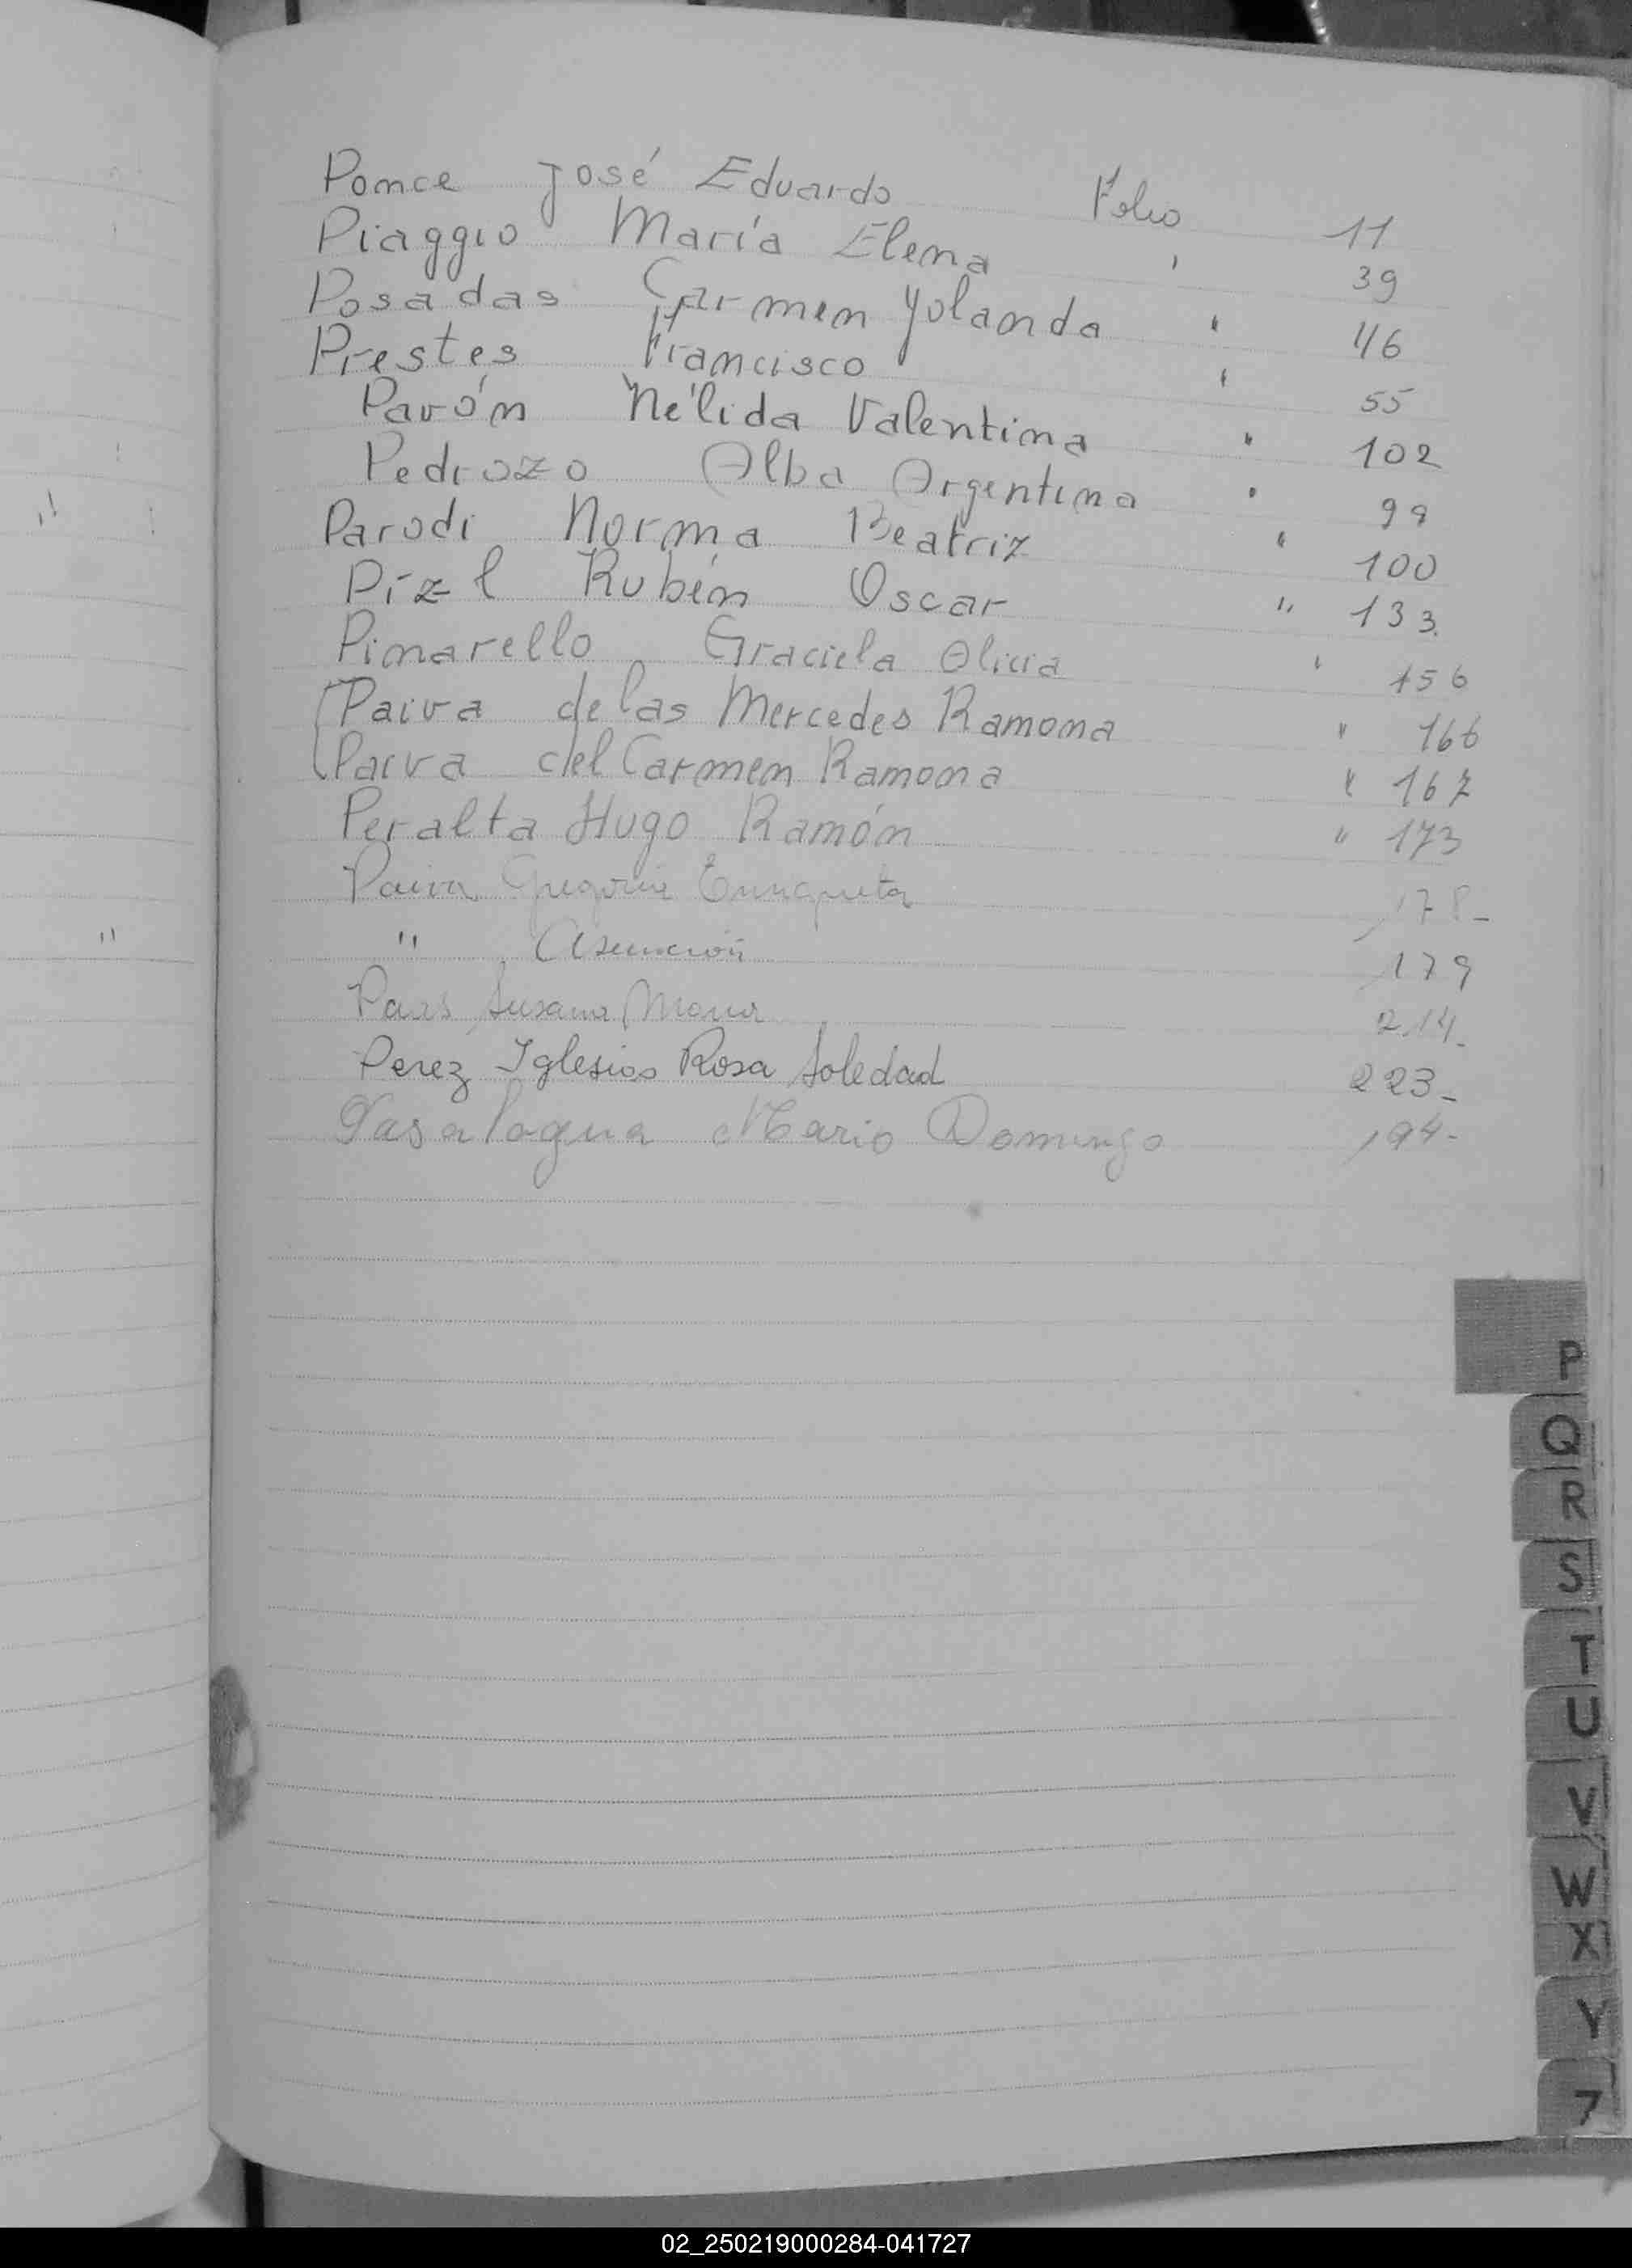 Ponce José Eduardo Folio 11
Piaggio María Elena " 39
Posadas Carmen Yolanda " 46
Prestes Francisco " 55
Pavón Nélida Valentina " 102
Pedrozo Alba Argentina " 99
Parodi Norma Beatriz " 100
Pízl Rubén Oscar " 133.
Pinarello Graciela Alicia " 156
Paiva de las Mercedes Ramona " 166
Paiva del Carmen Ramona " 167
Peralta Hugo Ramón " 173
Paiva Gregoria Enriqueta 178-
" Asunción 179
Susana María 214-
Perez Iglesias Rosa Soledad 223-
Pasalagua Mario Domingo 194-
P
Q
R
S
T
U
V
W
X
Y
Z
02_250219000284-041727